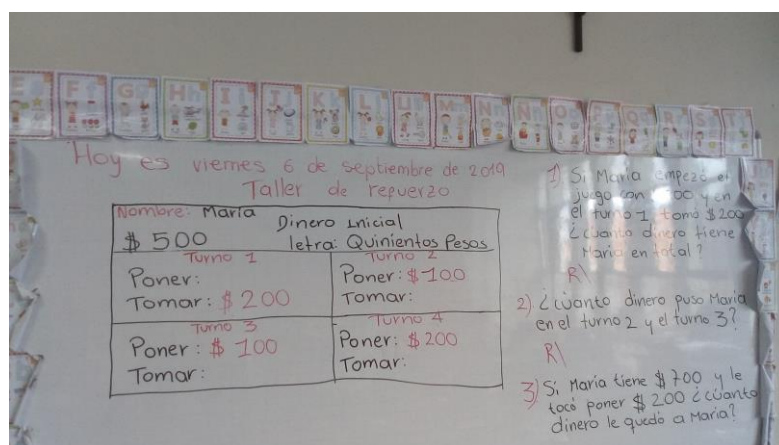 E F f G g H h I i J j K k L l Ll M m N n Ñ ñ O o P p Q q R r S s T t
Hoy es viernes 6 de septiembre de 2019
Taller de repuerzo
Nombre: María
Dinero inicial
$ 500
letra: Quinientos Pesos
Turno 1
Poner:
Tomar: $ 200
Turno 2
Poner: $ 100
Tomar:
Turno 3
Poner: $ 100
Tomar:
Turno 4
Poner: $ 200
Tomar:
1) Si María empezó el
juego con $500 y en
el turno 1 tomó $200
¿cuanto dinero tiene
María en total?
R\
2) ¿cuanto dinero puso María
en el turno 2 y el turno 3?
R\
3) Si María tiene $ 700 y le
tocó poner $ 200 ¿cuanto
dinero le quedó a María?